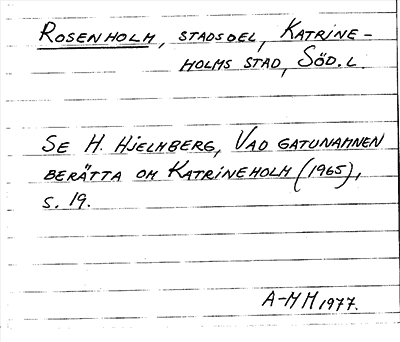 Rosenholm, stadsdel, Katrine-
holms stad, Söd. l.
Se H. Hjelmberg, Vad gatunamnen
berätta om Katrineholm (1965),
s. 19.
A-M H 1977.